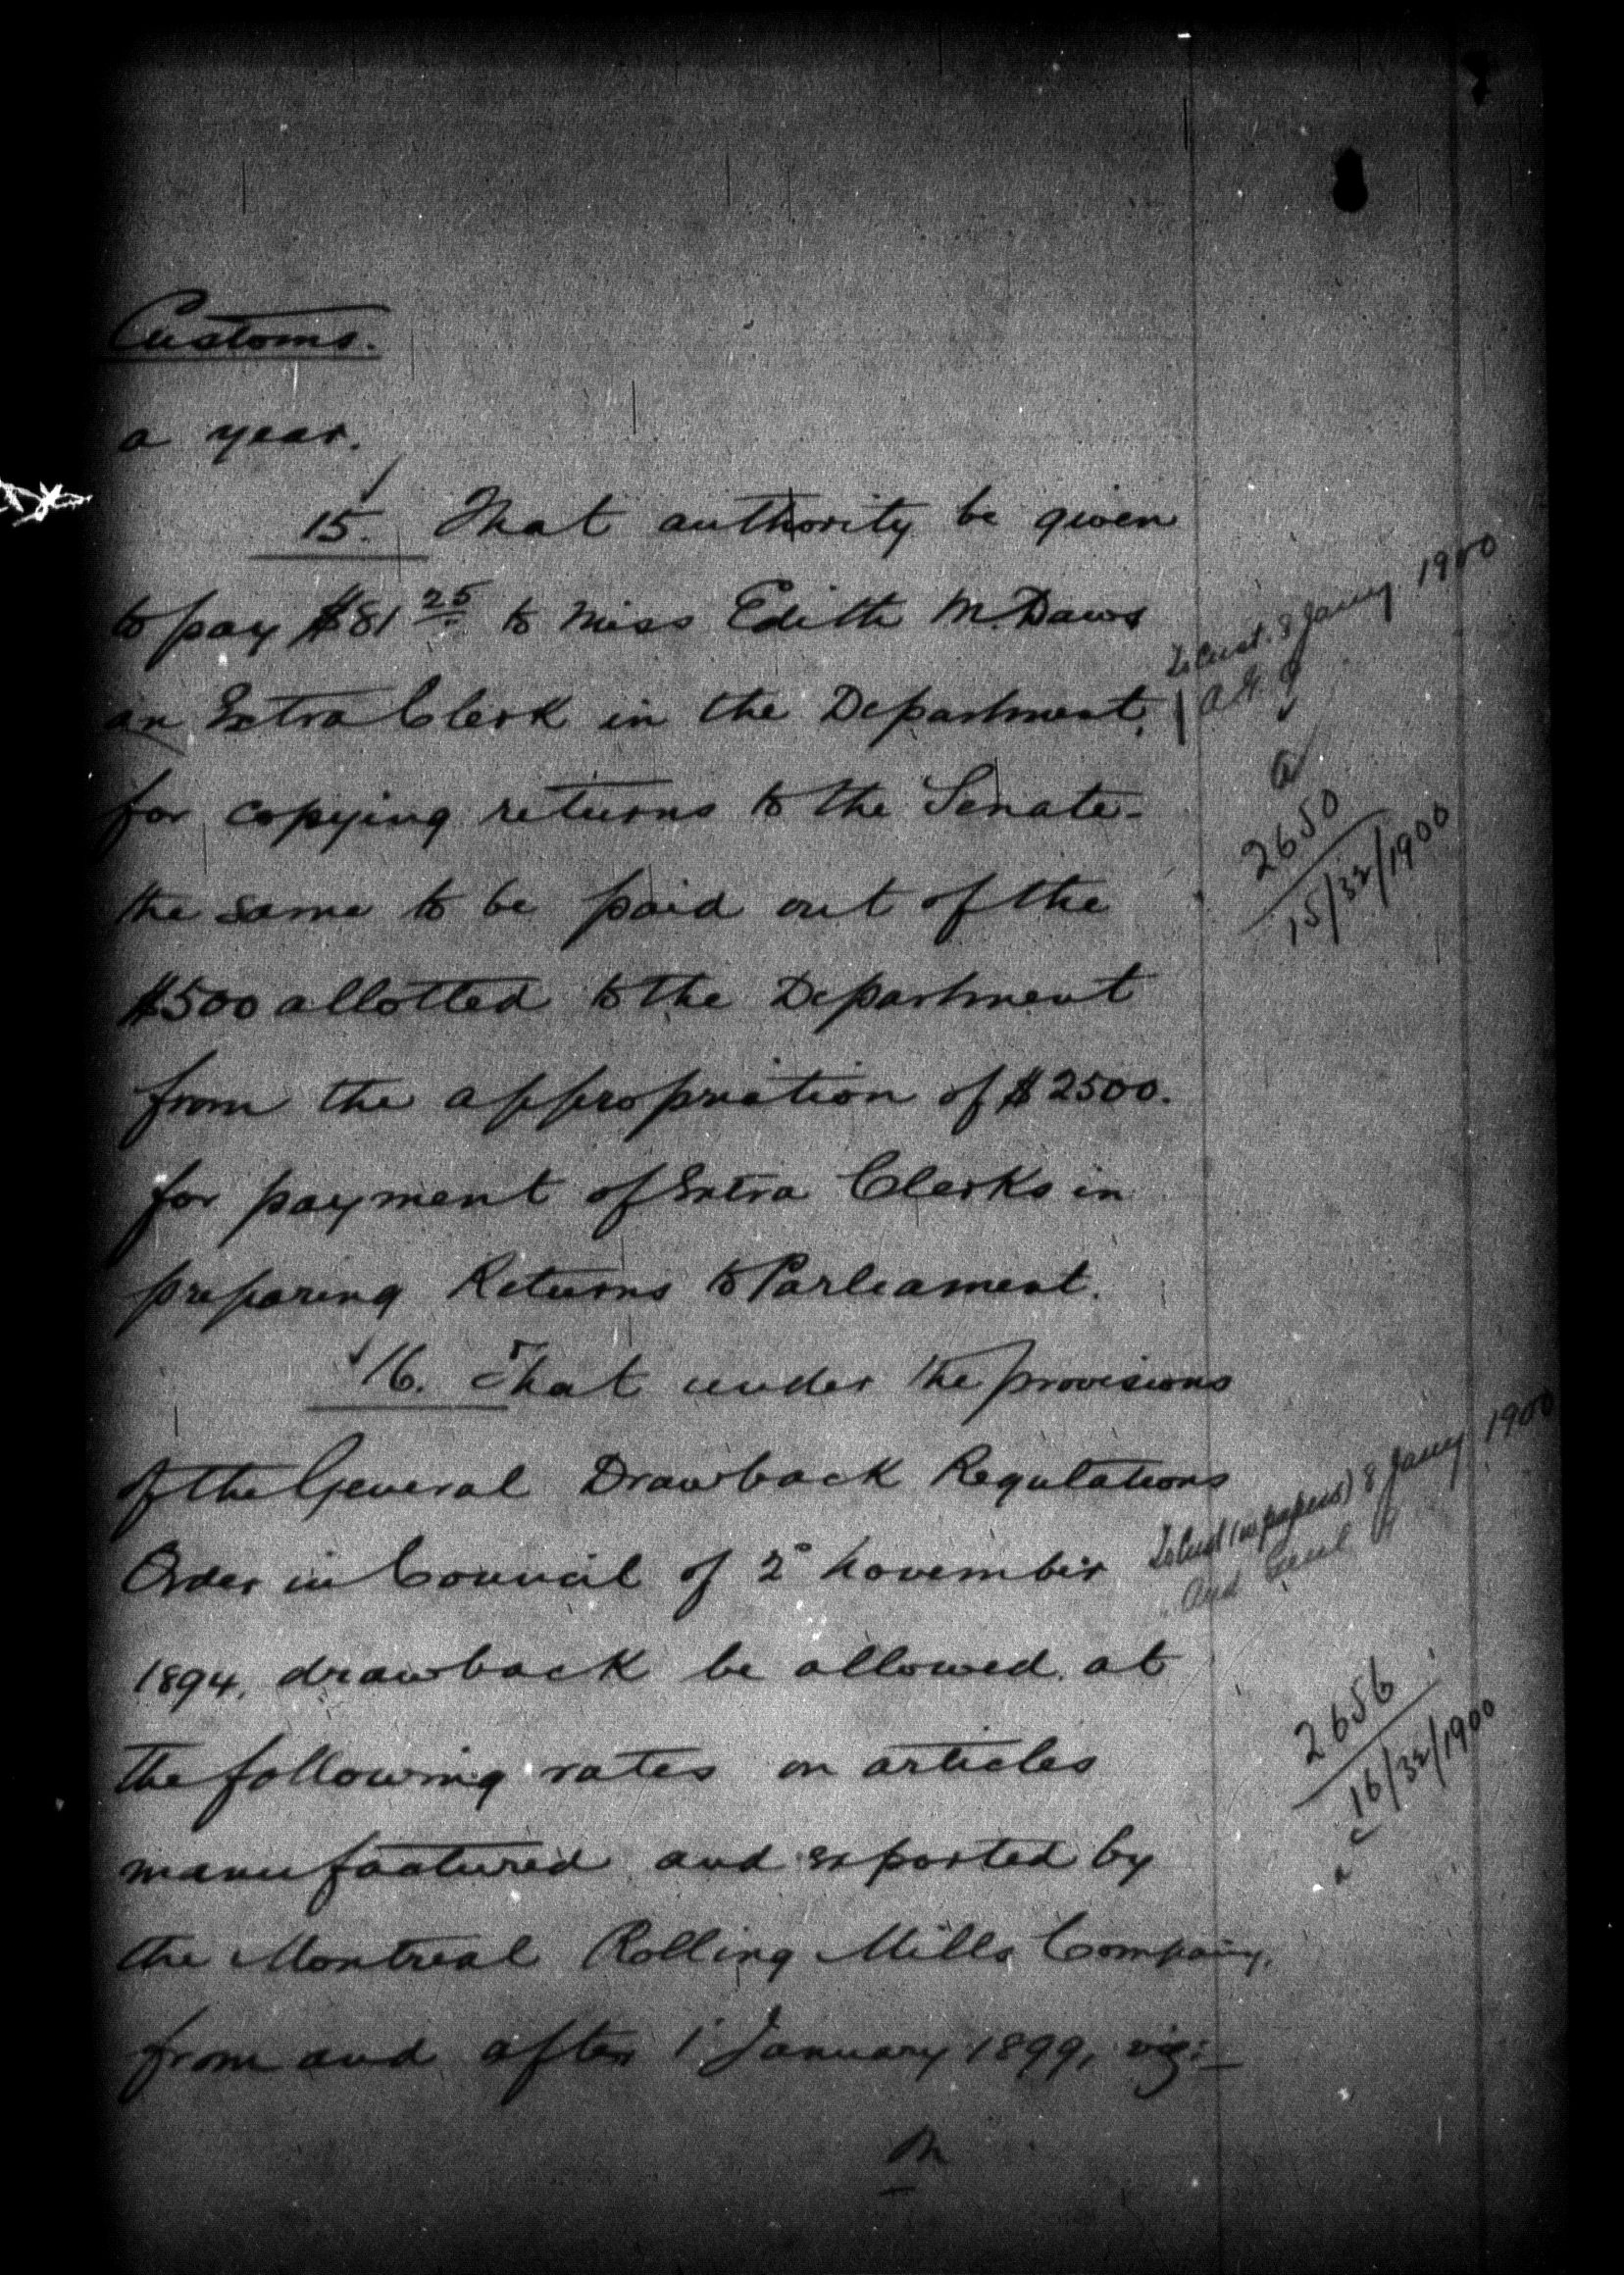 Customs.
a year.
15. That authority be given
to pay $81 25 to Miss Edith M. Daws
an Extra Clerk in the Department,
for copying returns to the Senate -
the same to be paid out of the
$500 allotted to the Department
from the appropriation of $2500.
for payment of Extra Clerks in
preparing Returns to Parliament.
To Cust. 8 Jany 1900
2650
15/32/1900
16. That under the provisions
of the General Drawback Regulations
Order in Council of 2° November
1894, drawback be allowed at
the following rates on articles
manufactured and exported by
the Montreal Rolling Mills Company,
from and after 1 January 1899, viz:-
To Cust (w papers) 8 Jany 1900
" Aud Genl
2656
16/32/1900